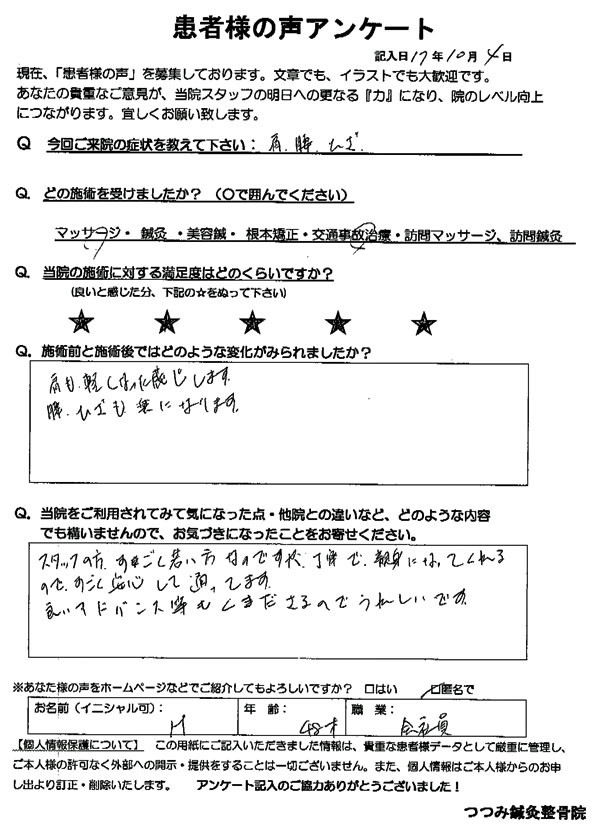 患者様の声アンケート
記入日17年10月4日
現在、「患者様の声」を募集しております。文章でも、イラストでも大歓迎です。
あなたの貴重なご意見が、当院スタッフの明日への更なる『力』になり、院のレベル向上
につながります。宜しくお願い致します。
Q 今回ご来院の症状を教えて下さい： 肩、腰、ひざ
Q. どの施術を受けましたか？（〇で囲んでください）
マッサージ・ 鍼灸 ・美容鍼・ 根本矯正・交通事故治療・訪問マッサージ、訪問鍼灸
Q. 当院の施術に対する満足度はどのくらいですか？
（良いと感じた分、下記の☆をぬって下さい）
★ ★ ★ ★ ★
Q. 施術前と施術後ではどのような変化がみられましたか？
肩も軽くなった感じします。
腰、ひざも楽になります。
Q. 当院をご利用されてみて気になった点・他院との違いなど、どのような内容
でも構いませんので、お気づきになったことをお寄せください。
スタッフの方、すごく若い方なのですが、丁寧で、親身になってくれる
ので、すごく安心して通ってます。
良いアドバンス等もくださるのでうれしいです。
※あなた様の声をホームページなどでご紹介してもよろしいですか？ □はい □匿名で
お名前（イニシャル可）： M 年 齢： 48才 職 業： 会社員
【個人情報保護について】 この用紙にご記入いただきました情報は、貴重な患者様データとして厳重に管理し、
ご本人様の許可なく外部への開示・提供をすることは一切ございません。また、個人情報はご本人様からのお申
し出より訂正・削除いたします。 アンケート記入のご協力ありがとうございました！
つつみ鍼灸整骨院